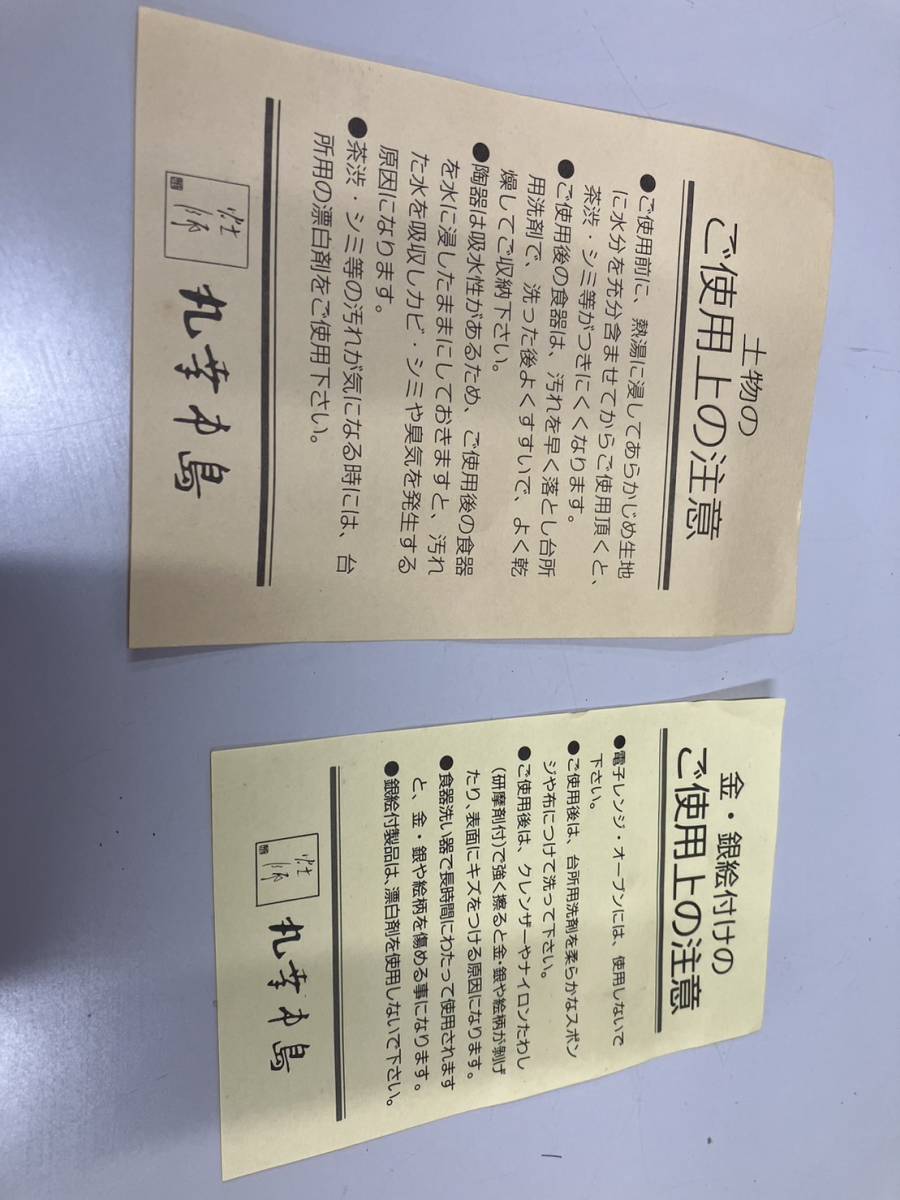 土物の
ご使用上の注意
●ご使用前に、熱湯に浸してあらかじめ生地
に水分を充分含ませてからご使用頂くと、
茶渋・シミ等がつきにくくなります。
●ご使用後の食器は、汚れを早く落とし台所
用洗剤で、洗った後よくすすいで、よく乾
燥してご収納下さい。
●陶器は吸水性があるため、ご使用後の食器
を水に浸したままにしておきますと、汚れ
た水を吸収しカビ・シミや臭気を発生する
原因になります。
●茶渋・シミ等の汚れが気になる時には、台
所用の漂白剤をご使用下さい。
丸幸中島
金・銀絵付けの
ご使用上の注意
●電子レンジ・オーブンには、使用しないで
下さい。
●ご使用後は、台所用洗剤を柔らかなスポン
ジや布につけて洗って下さい。
●ご使用後は、クレンザーやナイロンたわし
(研摩剤付)で強く擦ると金・銀や絵柄が剝げ
たり、表面にキズをつける原因になります。
●食器洗い器で長時間にわたって使用されます
と、金・銀や絵柄を傷める事になります。
●銀絵付製品は、漂白剤を使用しないで下さい。
丸幸中島